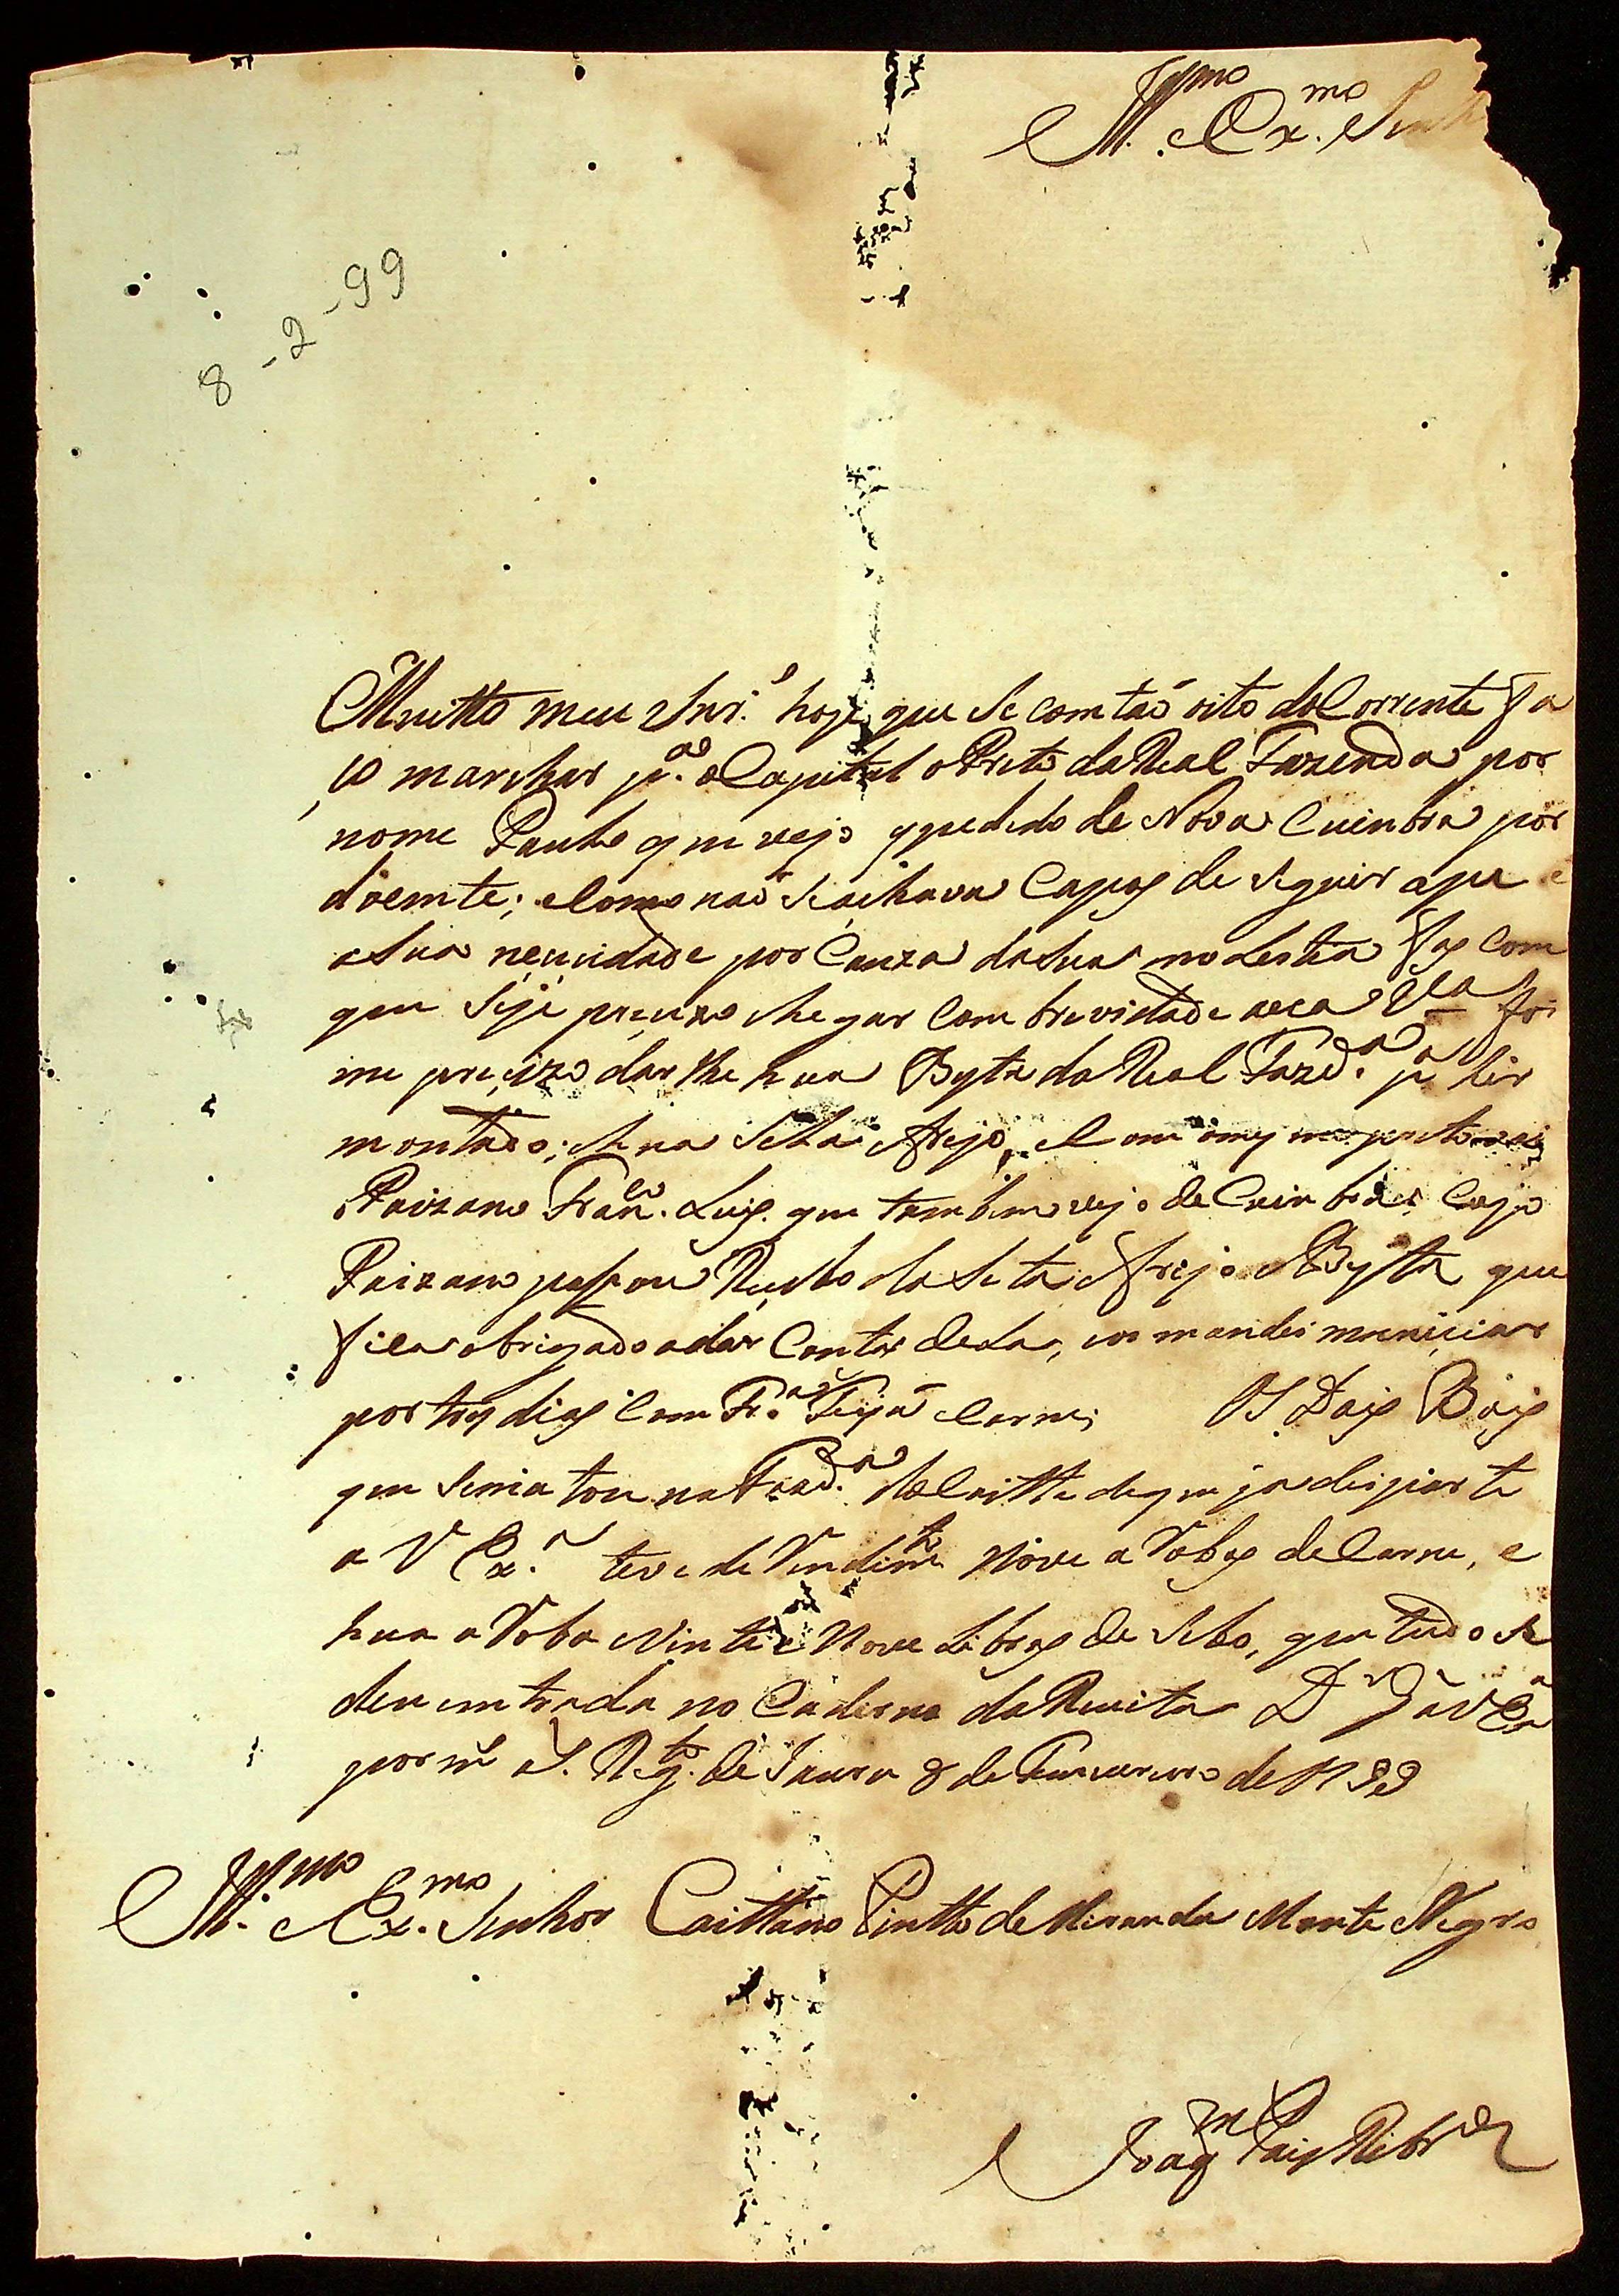 Ill.mo e Ex.mo Senh
8-2-99
Muitto meu Snr.' hoje que se comtaõ oito do Corrente fa
ço marchar p.a a Capital o Preto da Real Fazenda por
nome Paulo que vejo de Nova Cuimbra por
doemte; e Como naõ se achava Capas de seguir a pe e
a sua por Cauza da sua molestia fas com
que seje preçizo chegar Com brevidade a eça V.a foi
me preçizo dar lhe hua Bysta da Real Fazd.a p.a hir
montado; e hua Sella e frejo, e Com
Paizano Fran.co Luis que tambem vejo de Cuimbra, Cujo
Paizano passou Reçibo da Sella frejo e Bysta que
fica obrigado a dar Conta della, os mandei muniçiar
por tres dias Com Fr.a Feijaõ e Carne; Os Dois Bois
que se matou na Fazd.a do Caitte de que ja dei parte
a V Ex.a teve de Rendim.to Nove aRobas de Carne, e
hua aRoba e Vinte e Nove Libras de Sebo, que tudo se
deu emtrada no Caderno da Receita D.s G.e a V Ex.a
por m.s a.s Reg.to de Jauru 8 de Fevereiro de 1799
Ill.mo e Ex.mo Senhor Caittano Pintto de Miranda Monte Negro
Joaq.m Pais Rib.ro